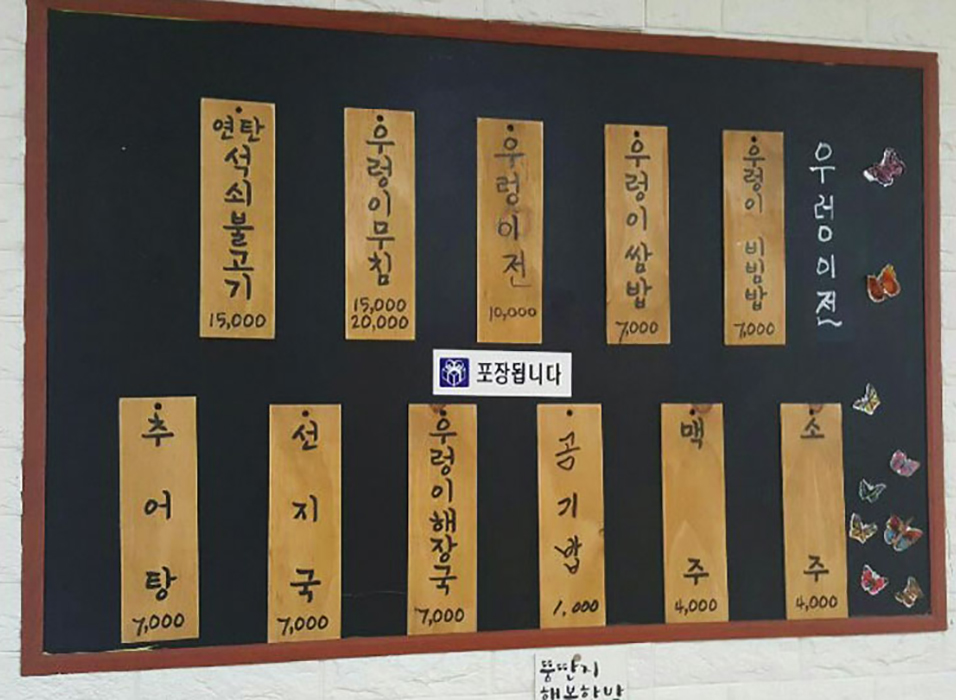 연탄
석쇠불고기
15,000
우렁이무침
15,000
20,000
우렁이전
10,000
우렁이쌈밥
7,000
우렁이 비빔밥
7,000
우렁이전
포장됩니다
추어탕
7,000
선지국
7,000
우렁이해장국
7,000
공기밥
1,000
맥주
4,000
소주
4,000
뚱딴지